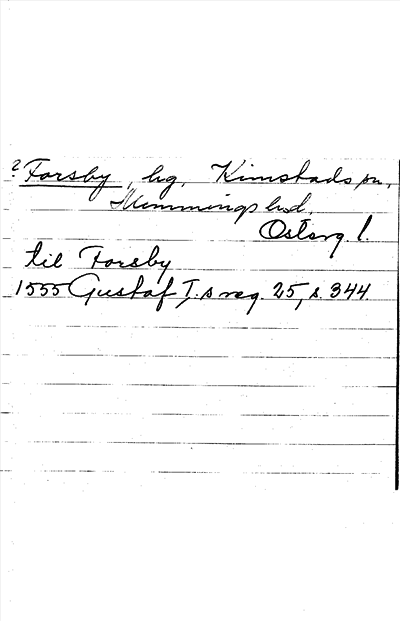 ? Forsby, hg, Kimstads sn,
Memmings hd.
Österg. l.
til Forsby
1555 Gustaf I:s reg. 25, s. 344.